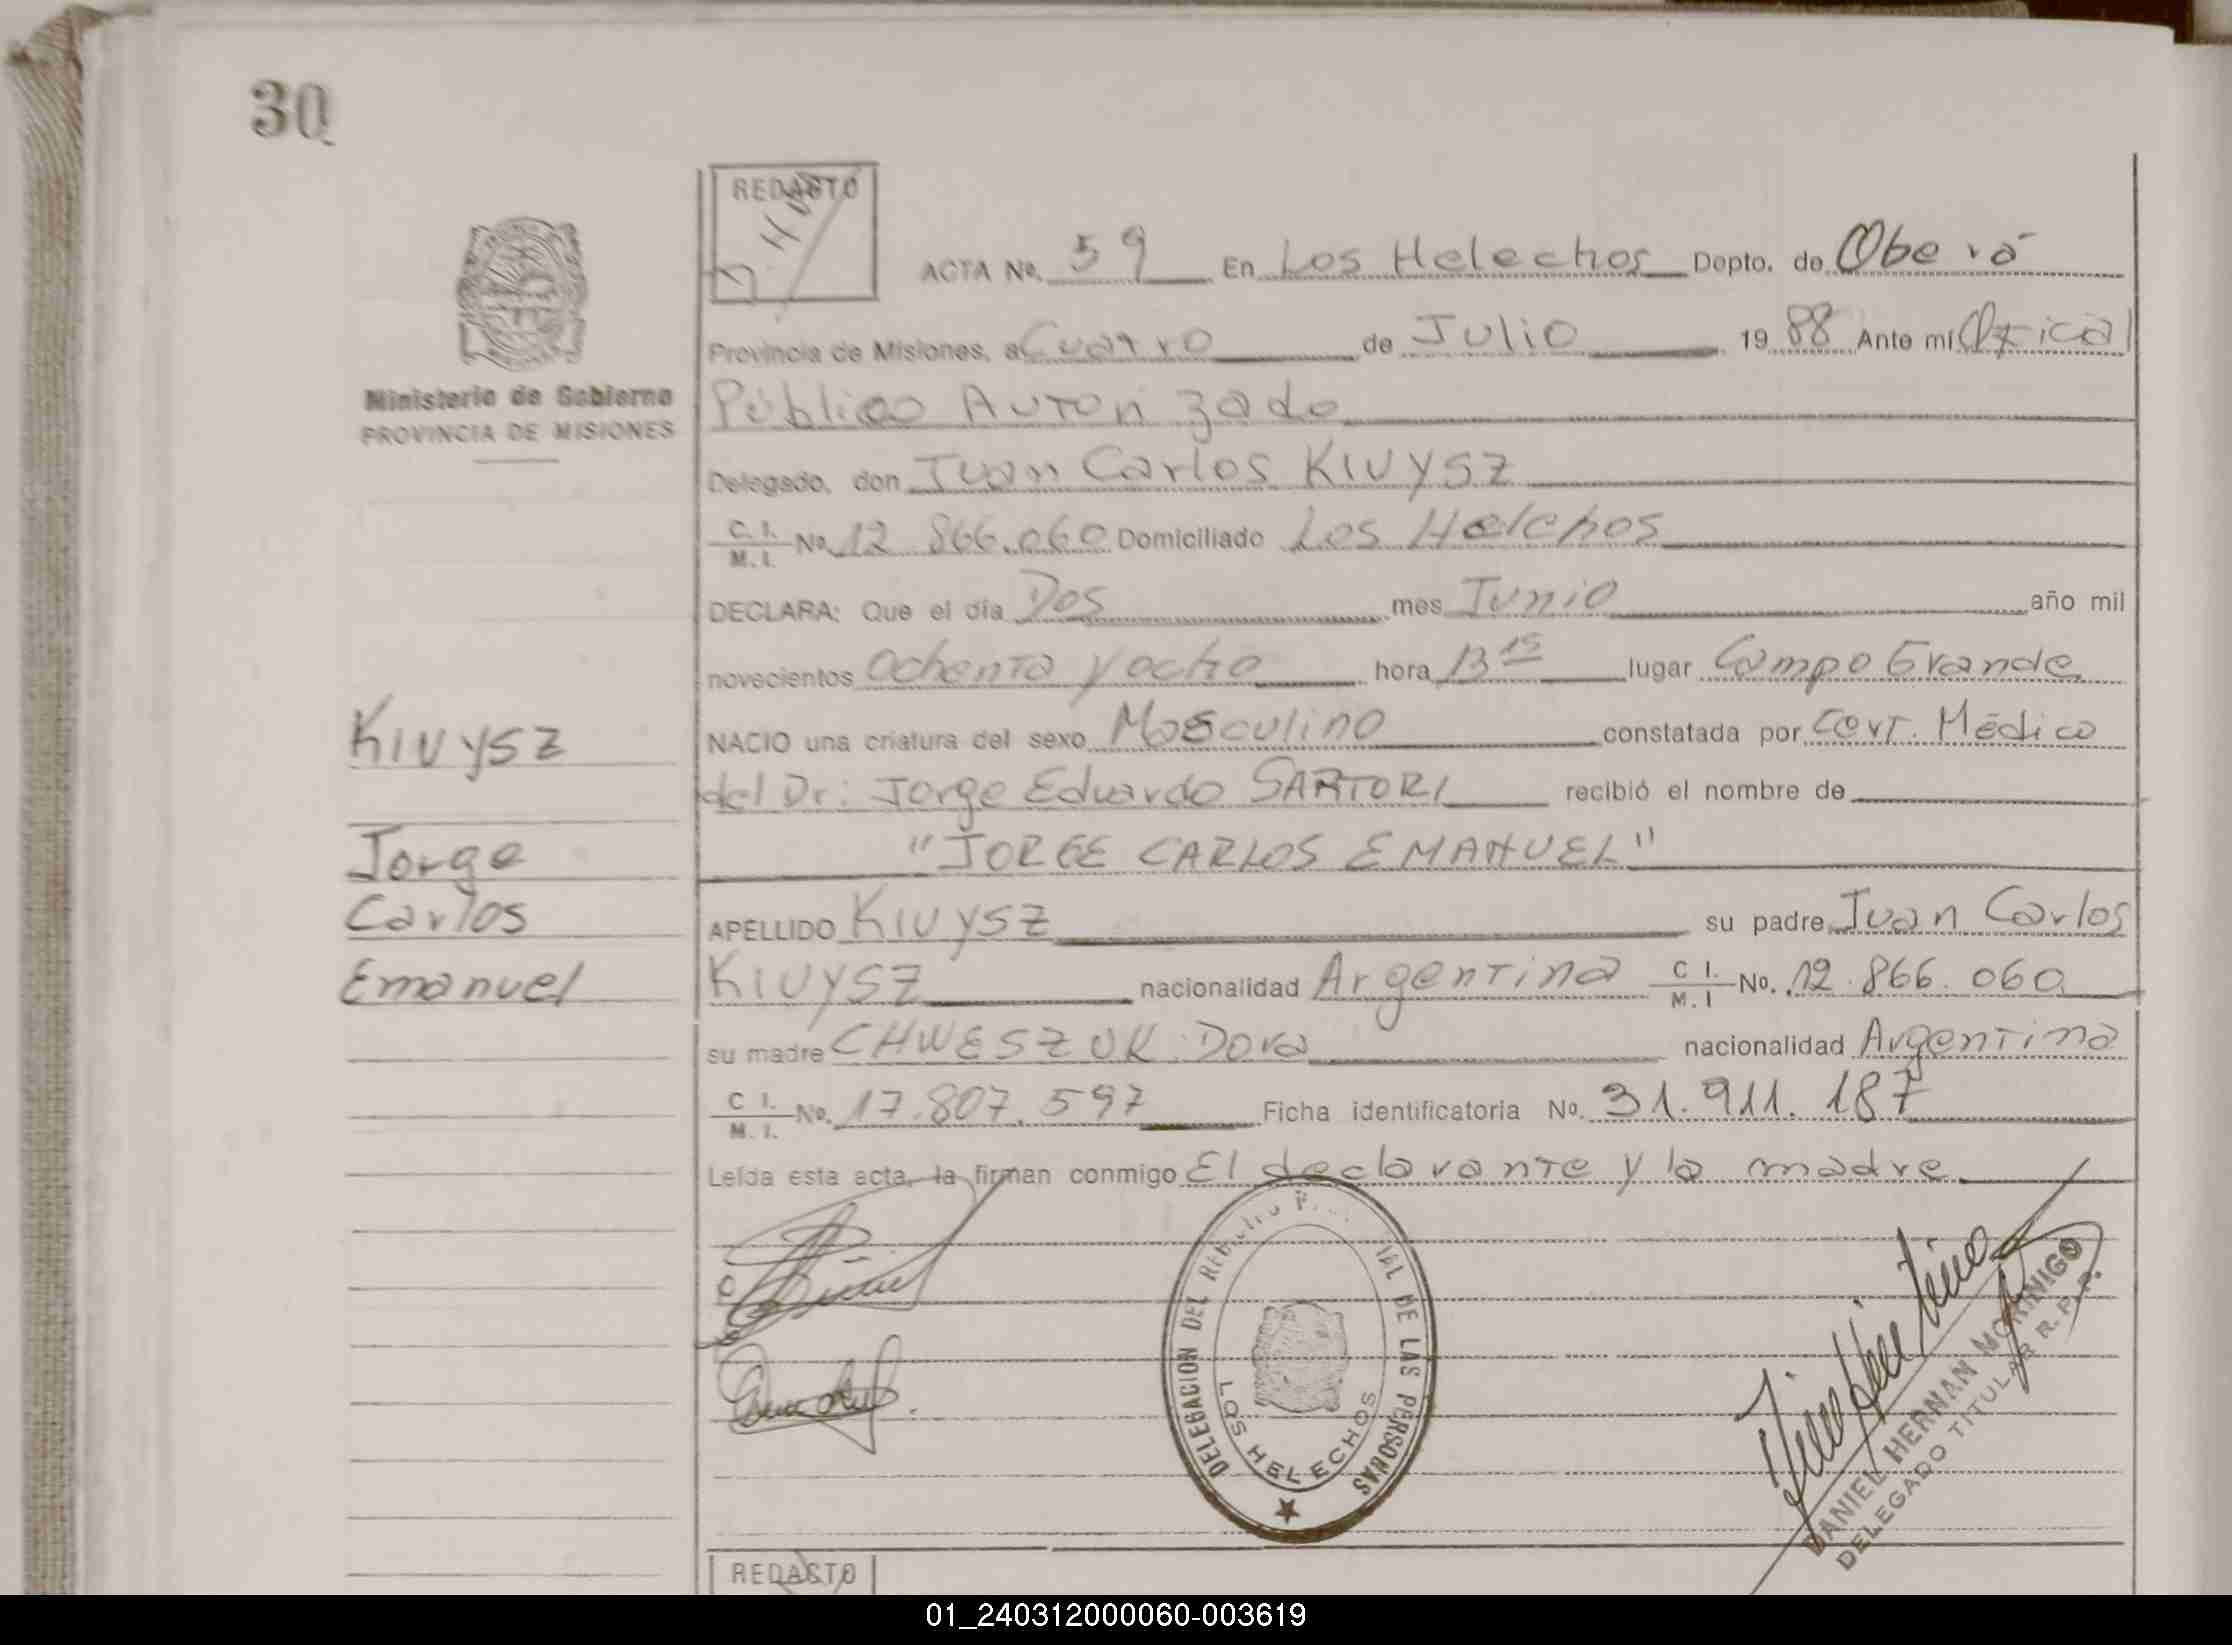 30
REDACTO
ACTA No. 59 En Los Helechos Depto. de Oberá
Provincia de Misiones, a Cuatro de Julio 1988 Ante mí Oficial
Público Autorizado
Delegado, don Juan Carlos KIUYSZ
C. I. / M. I. No. 12 866.060 Domiciliado Los Helchos
DECLARA: Que el día Dos mes Junio año mil
novecientos Ochenta y ocho hora 13 15 lugar Campo Grande
NACIO una criatura del sexo Masculino constatada por Cert. Médico
del Dr: Jorge Eduardo SARTORI recibió el nombre de
"JORGE CARLOS EMANUEL"
APELLIDO KIUYSZ su padre Juan Carlos
KIUYSZ nacionalidad Argentina C I. / M. I No. 12.866.060
su madre CHWESZUK Dora nacionalidad Argentina
C I. / M. I. No. 17.807.597 Ficha identificatoria No. 31.911.187
Leída esta acta, la firman conmigo El declarante y la madre
Ministerio de Gobierno
PROVINCIA DE MISIONES
KIUYSZ
Jorge
Carlos
Emanuel
DELEGACION DEL DE LAS PERSONAS
LOS HELECHOS
DANIEL HERNAN MORINIGO
DELEGADO TITULAR R.P.P.
REDACTO
01_240312000060-003619